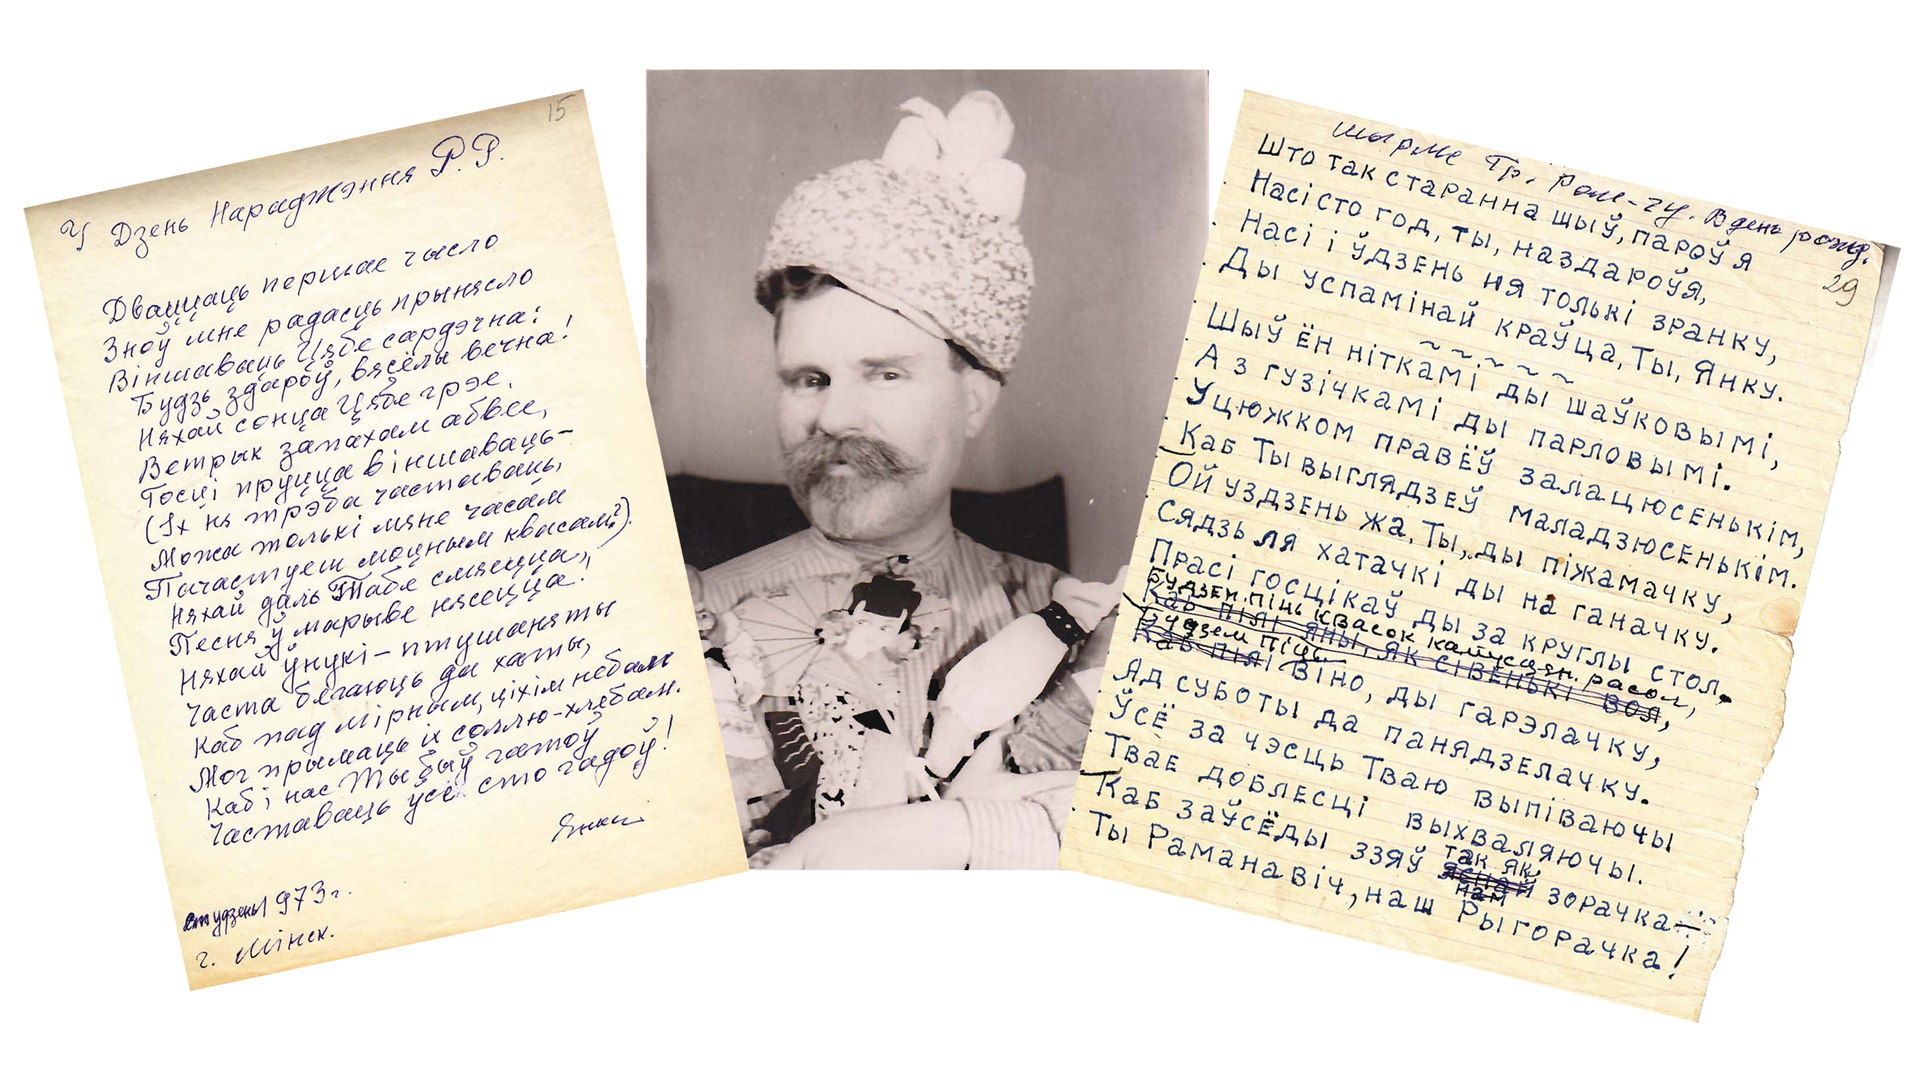 15
У Дзень Нараджэння Р.Р.
Дваццаць першае чысло
Зноў мне радасць прынясло
Віншаваць Цябе сардэчна:
Будзь здароў, вясёлы вечна!
Няхай сонца Цябе грэе,
Ветрык запахам абвее,
Госці пруцца віншаваць –
(Іх ня трэба частаваць,
Можа толькі мяне часам
Пачастуеш моцным квасам?).
Няхай даль Табе смяецца,
Песня ў марыве нясецца!
Няхай ўнукі – птушаняты
Часта бягаюць да хаты,
Каб пад мірным, ціхім небам
Мог прымаць іх соллю-хлебам.
Каб і нас Ты быў гатоў
Частаваць ўсіх сто гадоў!
Янка
студзень 1973 г.
г. Мінск.
Шырме Гр. Ром-чу. В день рожд.
29
Што так старанна шыў, пароў я
Насі сто год, ты, наздароўя,
Насі і ўдзень ня толькі зранку,
Ды успамінай краўца, Ты, Янку.
Шыў ён ніткамі ды шаўковымі,
А з гузічкамі ды парловымі.
Уцюжком правёў залацюсенькім,
Каб Ты выглядзеў маладзюсенькім.
Ой уздзень жа, Ты, ды піжамачку,
Сядзь ля хатачкі ды на ганачку.
Прасі госцікаў ды за круглы стол,
Будзем піць квасок капусцян. расол,
Каб пілі яны, як сівенькі вол,
Будзем піць
Каб пілі Віно, ды гарэлачку,
Яд суботы да панядзелачку.
Ўсё за чэсць Тваю выпіваючы
Твае доблесці выхваляючы.
Каб заўсёды ззяў так як, зорачка
нам
Ты Раманавіч, наш Рыгорачка!